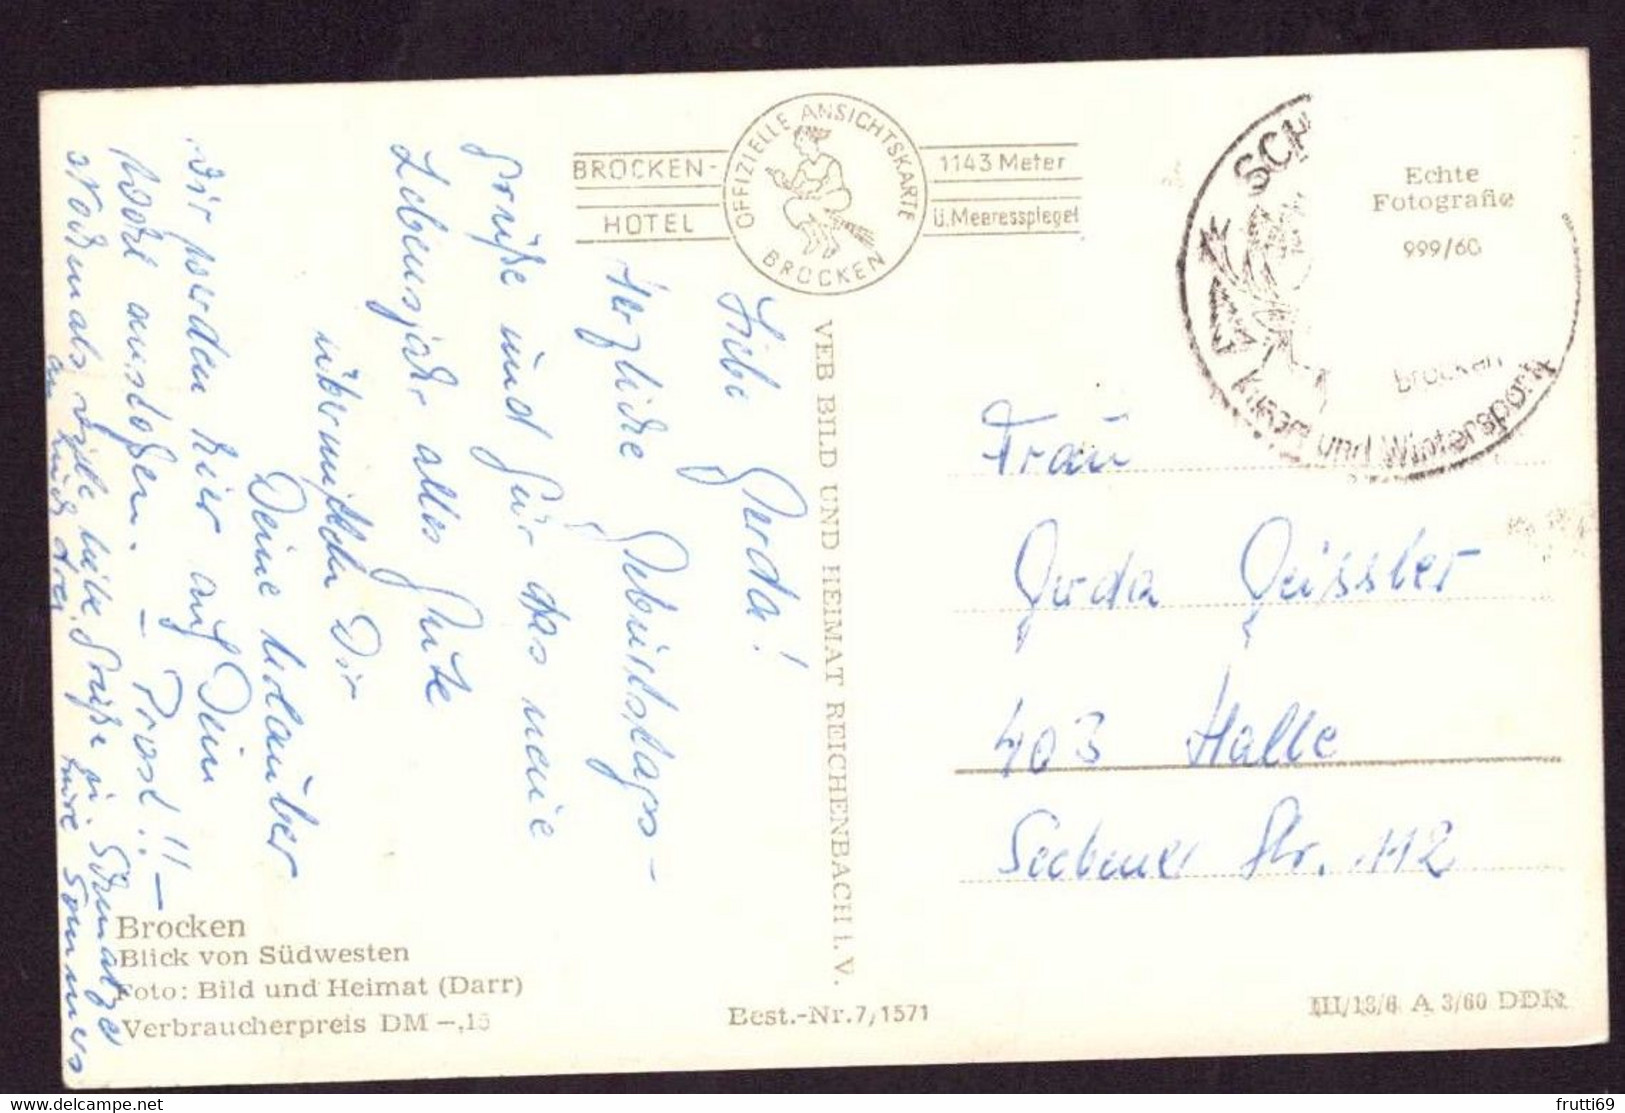 BROCKEN-
HOTEL
OFFIZIELLE ANSICHTSKARTE
BROCKEN
1143 Meter
ü. Meeresspiegel
SCH
Brocken
und Wintersport
Echte
Fotografie
999/60
Liebe Gerda!
Herzliche Geburtstags-
grüße und für das neue
Lebensjahr alles Gute
übermitteln Dir
Deine
Wir werden hier auf Dein
Wohl anstoßen. – Prost!! –
Nochmals viele liebe Grüße
an Euch drei
VEB BILD UND HEIMAT REICHENBACH i. V.
Frau
Gerda Geissler
403 Halle
Seebener Str. 112
Brocken
Blick von Südwesten
Foto: Bild und Heimat (Darr)
Verbraucherpreis DM –,15
Best.-Nr. 7/1571
III/18/6 A 3/60 DDR
frutti69